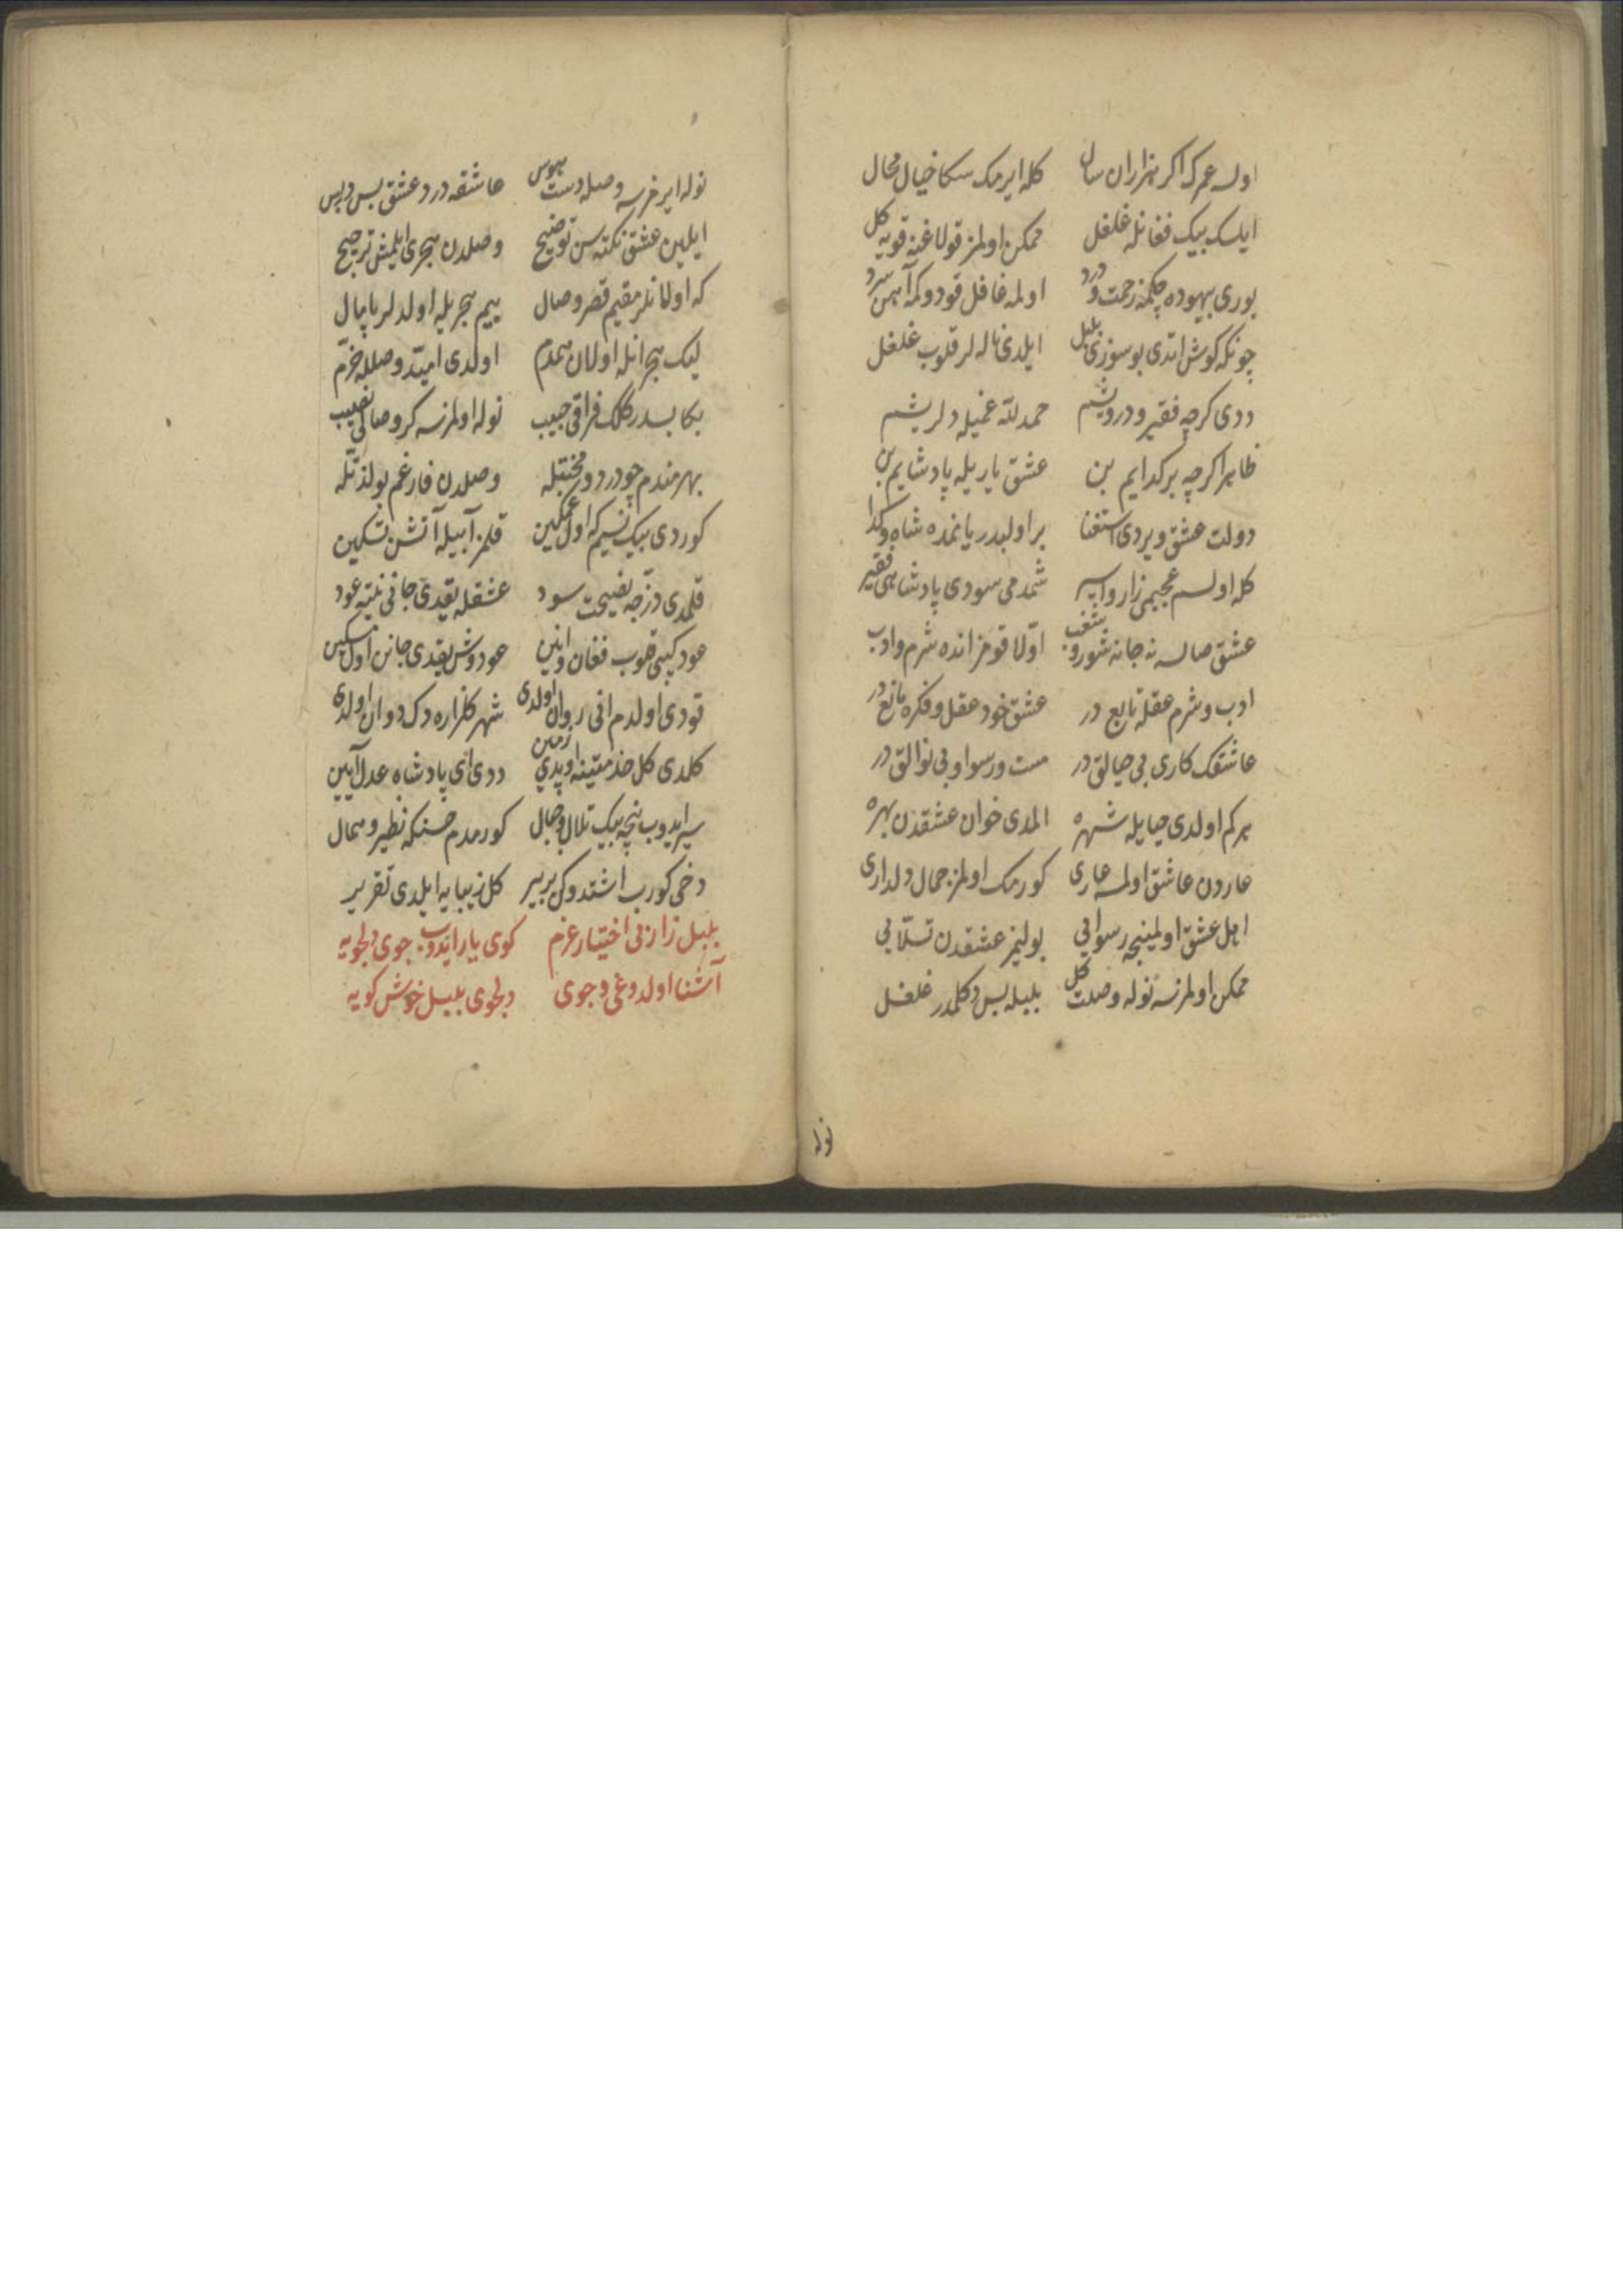 اولسه عمرك اكر هزاران سال كله ايرمك سكا خيال محال
ايلسك بيك فغانله غلغل ممكن اولمز قولاغنه قويه كل
يورى بيهوده چكمه زحمت و درد اولمه غافل قو دوكمه آهن سرد
چونكه كوش اتدى بو سوزى بلبل ايلدى ناله لر قلوب غلغل
ددى كرچه فقير و درويشم حمد لله غميله دلريشم
ظاهرا كرچه بر كدايم بن عشق ياريله پادشايم بن
دولت عشق ويردى استغنا بر اولبدر يانمده شاه و كدا
كله اولسم عجبمى زار و اسير شمدمى سودى پادشاهى فقير
عشق صالسه نه جانه شور و شغب اولا قومز انده شرم و ادب
ادب و شرم عقله تابع در عشق خود عقل و فكره مانع در
عاشقك كارى بى حيالق در مست و رسوا و بى نوالق در
هر كم اولدى حيايله شهره المدى خوان عشقدن بهره
عاردن عاشق اولمسه عارى كورمك اولمز جمال دلدارى
اهل عشق اولمينجه رسوايى بوليمز عشقدن تسلايى
ممكن اولمزسه نوله وصلت كل بلبله بس دكلمدر غلغل
نوله
نوله ايرمزسه وصله دست هوس عاشقه درد عشق بس در بس
ايلين عشق نكته سن توضيح وصلدن هجرى ايلمش ترجيح
كه اولانلر مقيم قصر وصال بيم هجريله اولدلر پامال
ليك هجرانله اولان همدم اولدى اميد وصلله خرم
بكا بسدر كلك فراقى حبيب نوله اولمزسه كر وصالى نصيب
بهرمندم چو درد و محنتله وصلدن فارغم بو لذتله
كوردى بيك نسيم كه اول غمكين قلمز آبيله آتشن تسكين
قلمدى ذرجه نصيحت سود عشقله يقدى جانى نيته عود
عود كبى قلوب فغان و انين عودوش يقدى جانن اول مسكين
قودى اولدم انى روان اولدى شهر كلزاره دك دوان اولدى
كلدى كل خدمتينه اوپدى زمين ددى اى پادشاه عدل آيين
سير ايدوب نيچه بيك تلال و جبال كورمدم حسنكه نظير و همال
دخى كورب اشتدوكن بر بير كل زيبايه ايلدى تقرير
بلبل زارنى اختيار عزم كوى يار ايدوب جوى دلجويه
آشنا اولدوغى و جوى دلجوى بلبل خوش كويه